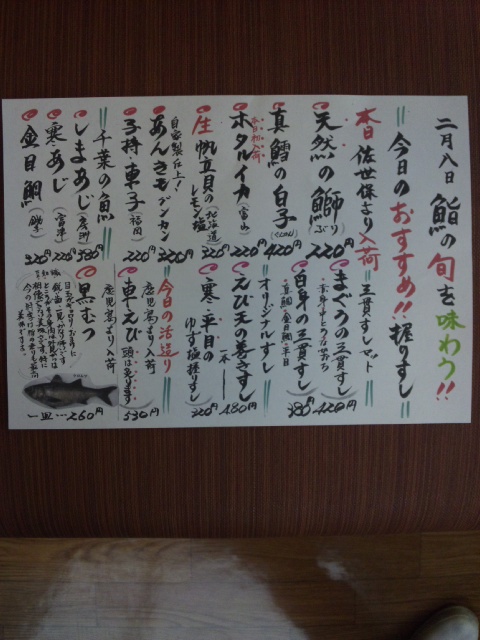 二月八日 鮨の旬を味わう!!
今日のおすすめ!! 握りすし
本日佐世保より入荷
天然の鰤 ぶり 220円
真鱈の白子 420円
本日初入荷
ホタルイカ(富山) 220円
生帆立貝のレモン塩(北海道) 220円
自家製仕上!
あんきもグンカン 220円
子持・車子(福岡) 220円
千葉の魚
しまあじ 380円
寒あじ(富津) 220円
金目鯛(銚子) 320円
三貫すしマット
まぐろの三貫すし 420円
白身の三貫すし 380円
真鯛・金目鯛・平目
オリジナルすし
えび天の巻きすし 一本 480円
寒・平目のゆず塩握りすし 320円
今日の活造り
鹿児島より入荷
車えび 頭は免ります 530円
鹿児島より入荷
黒むつ
一皿…260円